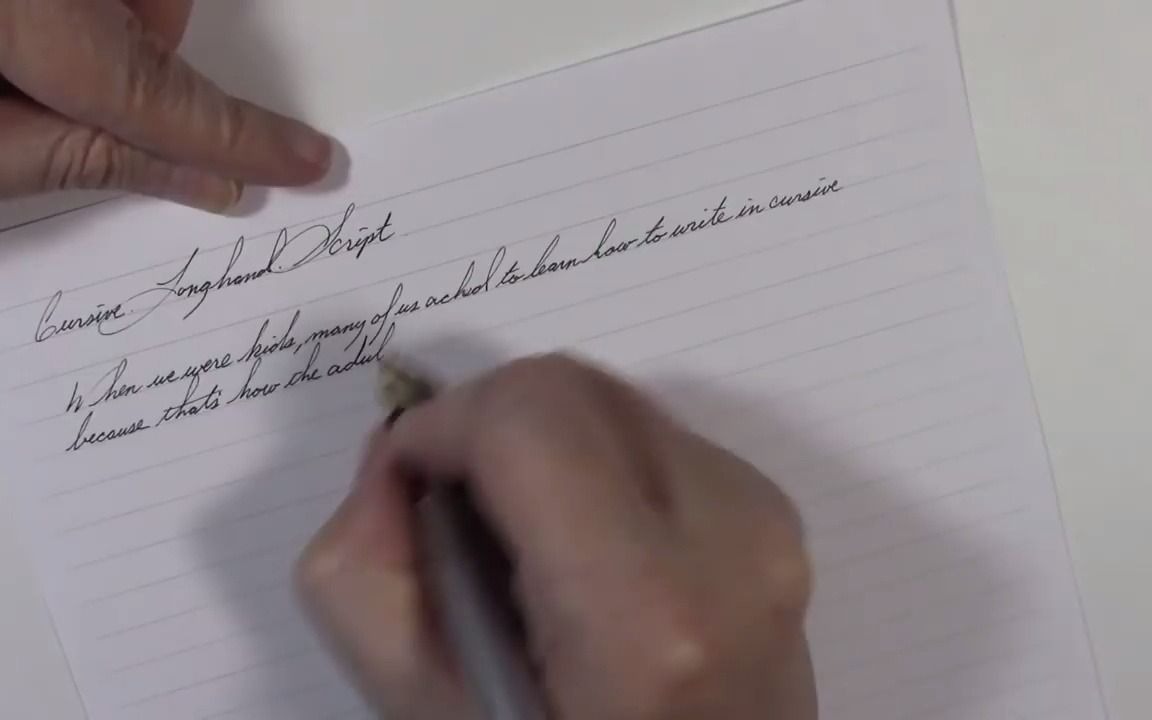 Cursive Longhand Script
When we were kids, many of us ached to learn how to write in cursive
because that's how the adul